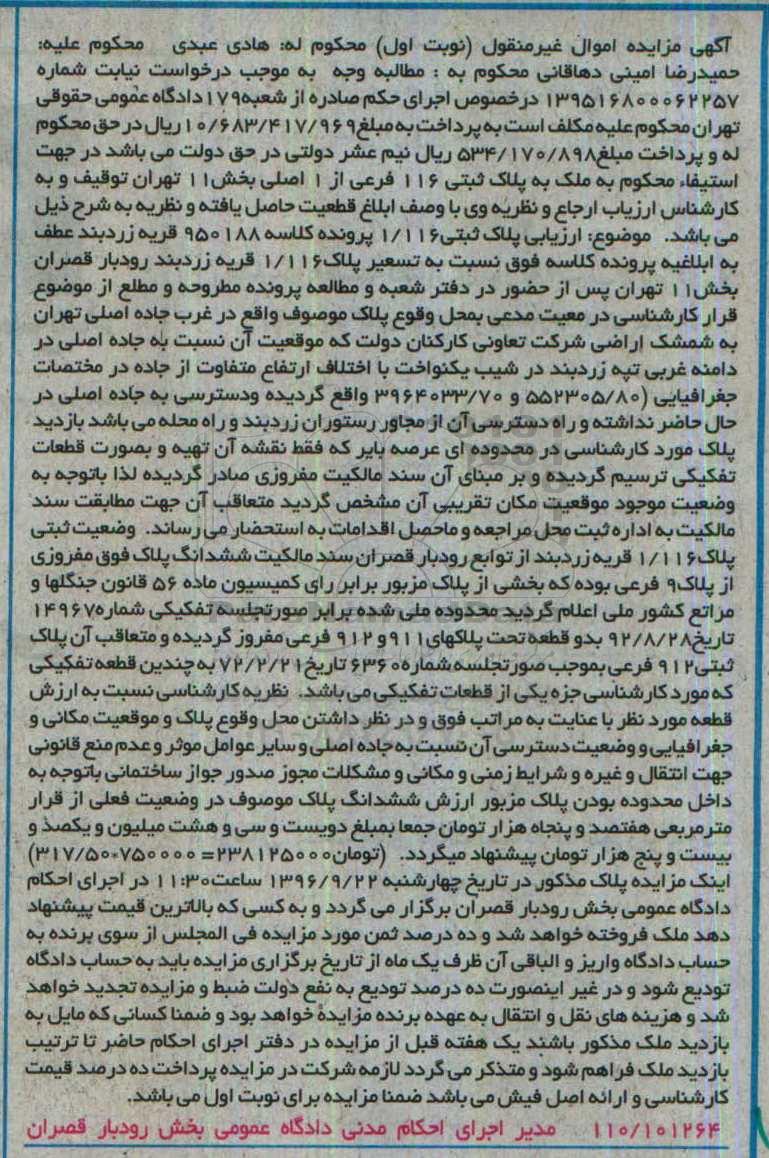 آگهی مزایده اموال غیرمنقول (نوبت اول) محکوم له: هادی عبدی محکوم علیه:
حمیدرضا امینی دهاقانی محکوم به : مطالبه وجه به موجب درخواست نیابت شماره
۱۳۹۵۱۶۸۰۰۰۶۲۲۵۷ درخصوص اجرای حکم صادره از شعبه۱۷۹ دادگاه عمومی حقوقی
تهران محکوم علیه مکلف است به پرداخت به مبلغ۱۰/۶۸۳/۴۱۷/۹۶۹ ریال در حق محکوم
له و پرداخت مبلغ۵۳۴/۱۷۰/۸۹۸ ریال نیم عشر دولتی در حق دولت می باشد در جهت
استیفاء محکوم به ملک به پلاک ثبتی ۱۱۶ فرعی از ۱ اصلی بخش۱۱ تهران توقیف و به
کارشناس ارزیاب ارجاع و نظریه وی با وصف ابلاغ قطعیت حاصل یافته و نظریه به شرح ذیل
می باشد. موضوع: ارزیابی پلاک ثبتی۱/۱۱۶ پرونده کلاسه ۹۵۰۱۸۸ قریه زردبند عطف
به ابلاغیه پرونده کلاسه فوق نسبت به تسعیر پلاک۱/۱۱۶ قریه زردبند رودبار قصران
بخش۱۱ تهران پس از حضور در دفتر شعبه و مطالعه پرونده مطروحه و مطلع از موضوع
قرار کارشناسی در معیت مدعی بمحل وقوع پلاک موصوف واقع در غرب جاده اصلی تهران
به شمشک اراضی شرکت تعاونی کارکنان دولت که موقعیت آن نسبت به جاده اصلی در
دامنه غربی تپه زردبند در شیب یکنواخت با اختلاف ارتفاع متفاوت از جاده در مختصات
جغرافیایی (۵۵۲۳۰۵/۸۰ و ۳۹۶۴۰۳۳/۷۰ واقع گردیده ودسترسی به جاده اصلی در
حال حاضر نداشته و راه دسترسی آن از مجاور رستوران زردبند و راه محله می باشد بازدید
پلاک مورد کارشناسی در محدوده ای عرصه بایر که فقط نقشه آن تهیه و بصورت قطعات
تفکیکی ترسیم گردیده و بر مبنای آن سند مالکیت مفروزی صادر گردیده لذا باتوجه به
وضعیت موجود موقعیت مکان تقریبی آن مشخص گردید متعاقب آن جهت مطابقت سند
مالکیت به اداره ثبت محل مراجعه و ماحصل اقدامات به استحضار می رساند. وضعیت ثبتی
پلاک۱/۱۱۶ قریه زردبند از توابع رودبار قصران سند مالکیت ششدانگ پلاک فوق مفروزی
از پلاک۹ فرعی بوده که بخشی از پلاک مزبور برابر رای کمیسیون ماده ۵۶ قانون جنگلها و
مراتع کشور ملی اعلام گردید محدوده ملی شده برابر صورتجلسه تفکیکی شماره۱۴۹۶۷
تاریخ۹۲/۸/۲۸ بدو قطعه تحت پلاکهای۹۱۱و ۹۱۲ فرعی مفروز گردیده و متعاقب آن پلاک
ثبتی۹۱۲ فرعی بموجب صورتجلسه شماره۶۳۶۰ تاریخ۷۲/۲/۲۱ به چندین قطعه تفکیکی
که مورد کارشناسی جزء یکی از قطعات تفکیکی می باشد. نظریه کارشناسی نسبت به ارزش
قطعه مورد نظر با عنایت به مراتب فوق و در نظر داشتن محل وقوع پلاک و موقعیت مکانی و
جغرافیایی و وضعیت دسترسی آن نسبت به جاده اصلی و سایر عوامل موثر و عدم منع قانونی
جهت انتقال و غیره و شرایط زمنی و مکانی و مشکلات مجوز صدور جواز ساختمانی باتوجه به
داخل محدوده بودن پلاک مزبور ارزش ششدانگ پلاک موصوف در وضعیت فعلی از قرار
مترمربعی هفتصد و پنجاه هزار تومان جمعا بمبلغ دویست و سی و هشت میلیون و یکصد و
بیست و پنج هزار تومان پیشنهاد میگردد. (تومان۲۳۸۱۲۵۰۰۰=۷۵۰۰۰۰*۳۱۷/۵۰)
اینک مزایده پلاک مذکور در تاریخ چهارشنبه ۱۳۹۶/۹/۲۲ ساعت۱۱:۳۰ در اجرای احکام
دادگاه عمومی بخش رودبار قصران برگزار می گردد و به کسی که بالاترین قیمت پیشنهاد
دهد ملک فروخته خواهد شد و ده درصد ثمن مورد مزایده فی المجلس از سوی برنده به
حساب دادگاه واریز و الباقی آن ظرف یک ماه از تاریخ برگزاری مزایده باید به حساب دادگاه
تودیع شود و در غیر اینصورت ده درصد تودیع به نفع دولت ضبط و مزایده تجدید خواهد
شد و هزینه های نقل و انتقال به عهده برنده مزایده خواهد بود و ضمنا کسانی که مایل به
بازدید ملک مذکور باشند یک هفته قبل از مزایده در دفتر اجرای احکام حاضر تا ترتیب
بازدید ملک فراهم شود و متذکر می گردد لازمه شرکت در مزایده پرداخت ده درصد قیمت
کارشناسی و ارائه اصل فیش می باشد ضمنا مزایده برای نوبت اول می باشد.
۱۱۰/۱۰۱۲۶۴ مدیر اجرای احکام مدنی دادگاه عمومی بخش رودبار قصران